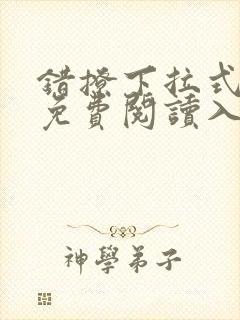 錯撩下拉式
免費閱讀入
神學弟子